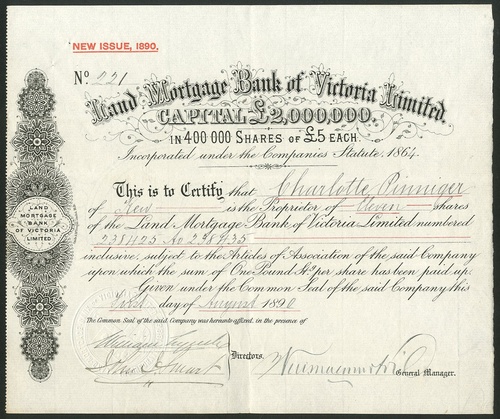 NEW ISSUE, 1890.
No. 221
Land Mortgage Bank of Victoria Limited.
CAPITAL £2,000,000.
IN 400 000 SHARES OF £5 EACH.
Incorporated under the Companies Statute, 1864.
This is to Certify that Charlotte Pinniger
of Kew is the Proprietor of Eleven shares
of the Land Mortgage Bank of Victoria Limited numbered
inclusive, subject to the Articles of Association of the said Company
upon which the sum of One Pound Stg. per share has been paid up.
Given under the Common Seal of the said Company this
First day of August 1890
The Common Seal of the said Company was hereunto affixed, in the presence of
Directors.
General Manager.
LAND
MORTGAGE
BANK
OF VICTORIA
LIMITED